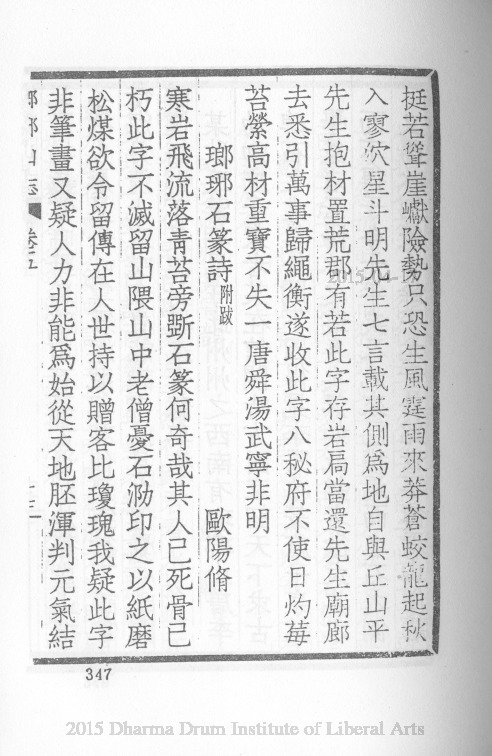 挺若聳崖巘險勢只恐生風霆雨來莽蒼蛟龍起秋
入寥泬星斗明先生七言載其側為地自與丘山平
先生抱材置荒郡有若此字存岩扃當還先生廟廊
去悉引萬事歸繩衡遂收此字八秘府不使日灼莓
苔縈高材重寶不失一唐舜湯武寧非明
瑯琊石篆詩附跋 歐陽脩
寒岩飛流落青苔旁斲石篆何奇哉其人已死骨已
朽此字不滅留山隈山中老僧憂石泐印之以紙磨
松煤欲令留傳在人世持以贈客比瓊瑰我疑此字
非筆畫又疑人力非能為始從天地胚渾判元氣結
瑯琊山志 卷五
347
2015 Dharma Drum Institute of Liberal Arts